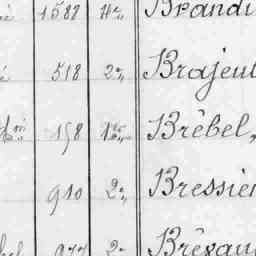 1588 4e Brandi
518 2e Brajeu
158 1er Brébel,
910 2e Bressie
977 2e Brévau